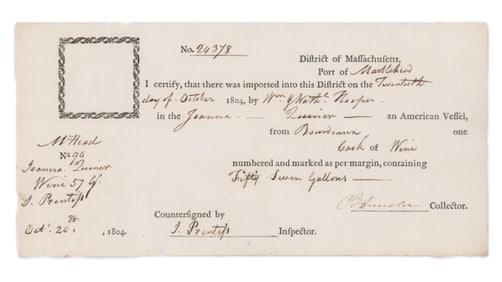 No. 24378
District of Massachusetts.
Port of Marblehead
I certify, that there was imported into this District on the Twentieth
day of October 1804, by Wm & Nathl. Hooper
in the Joanna Turner an American Vessel,
from Bourdeaux one
Cask of Wine
numbered and marked as per margin, containing
Fifty Seven Gallons
Collector.
Countersigned by
J. Prentiss Inspector.
M Head
No 90
Joanna. Turner
Wine 57 Gs.
J. Prentiss
Octr. 20th, 1804.